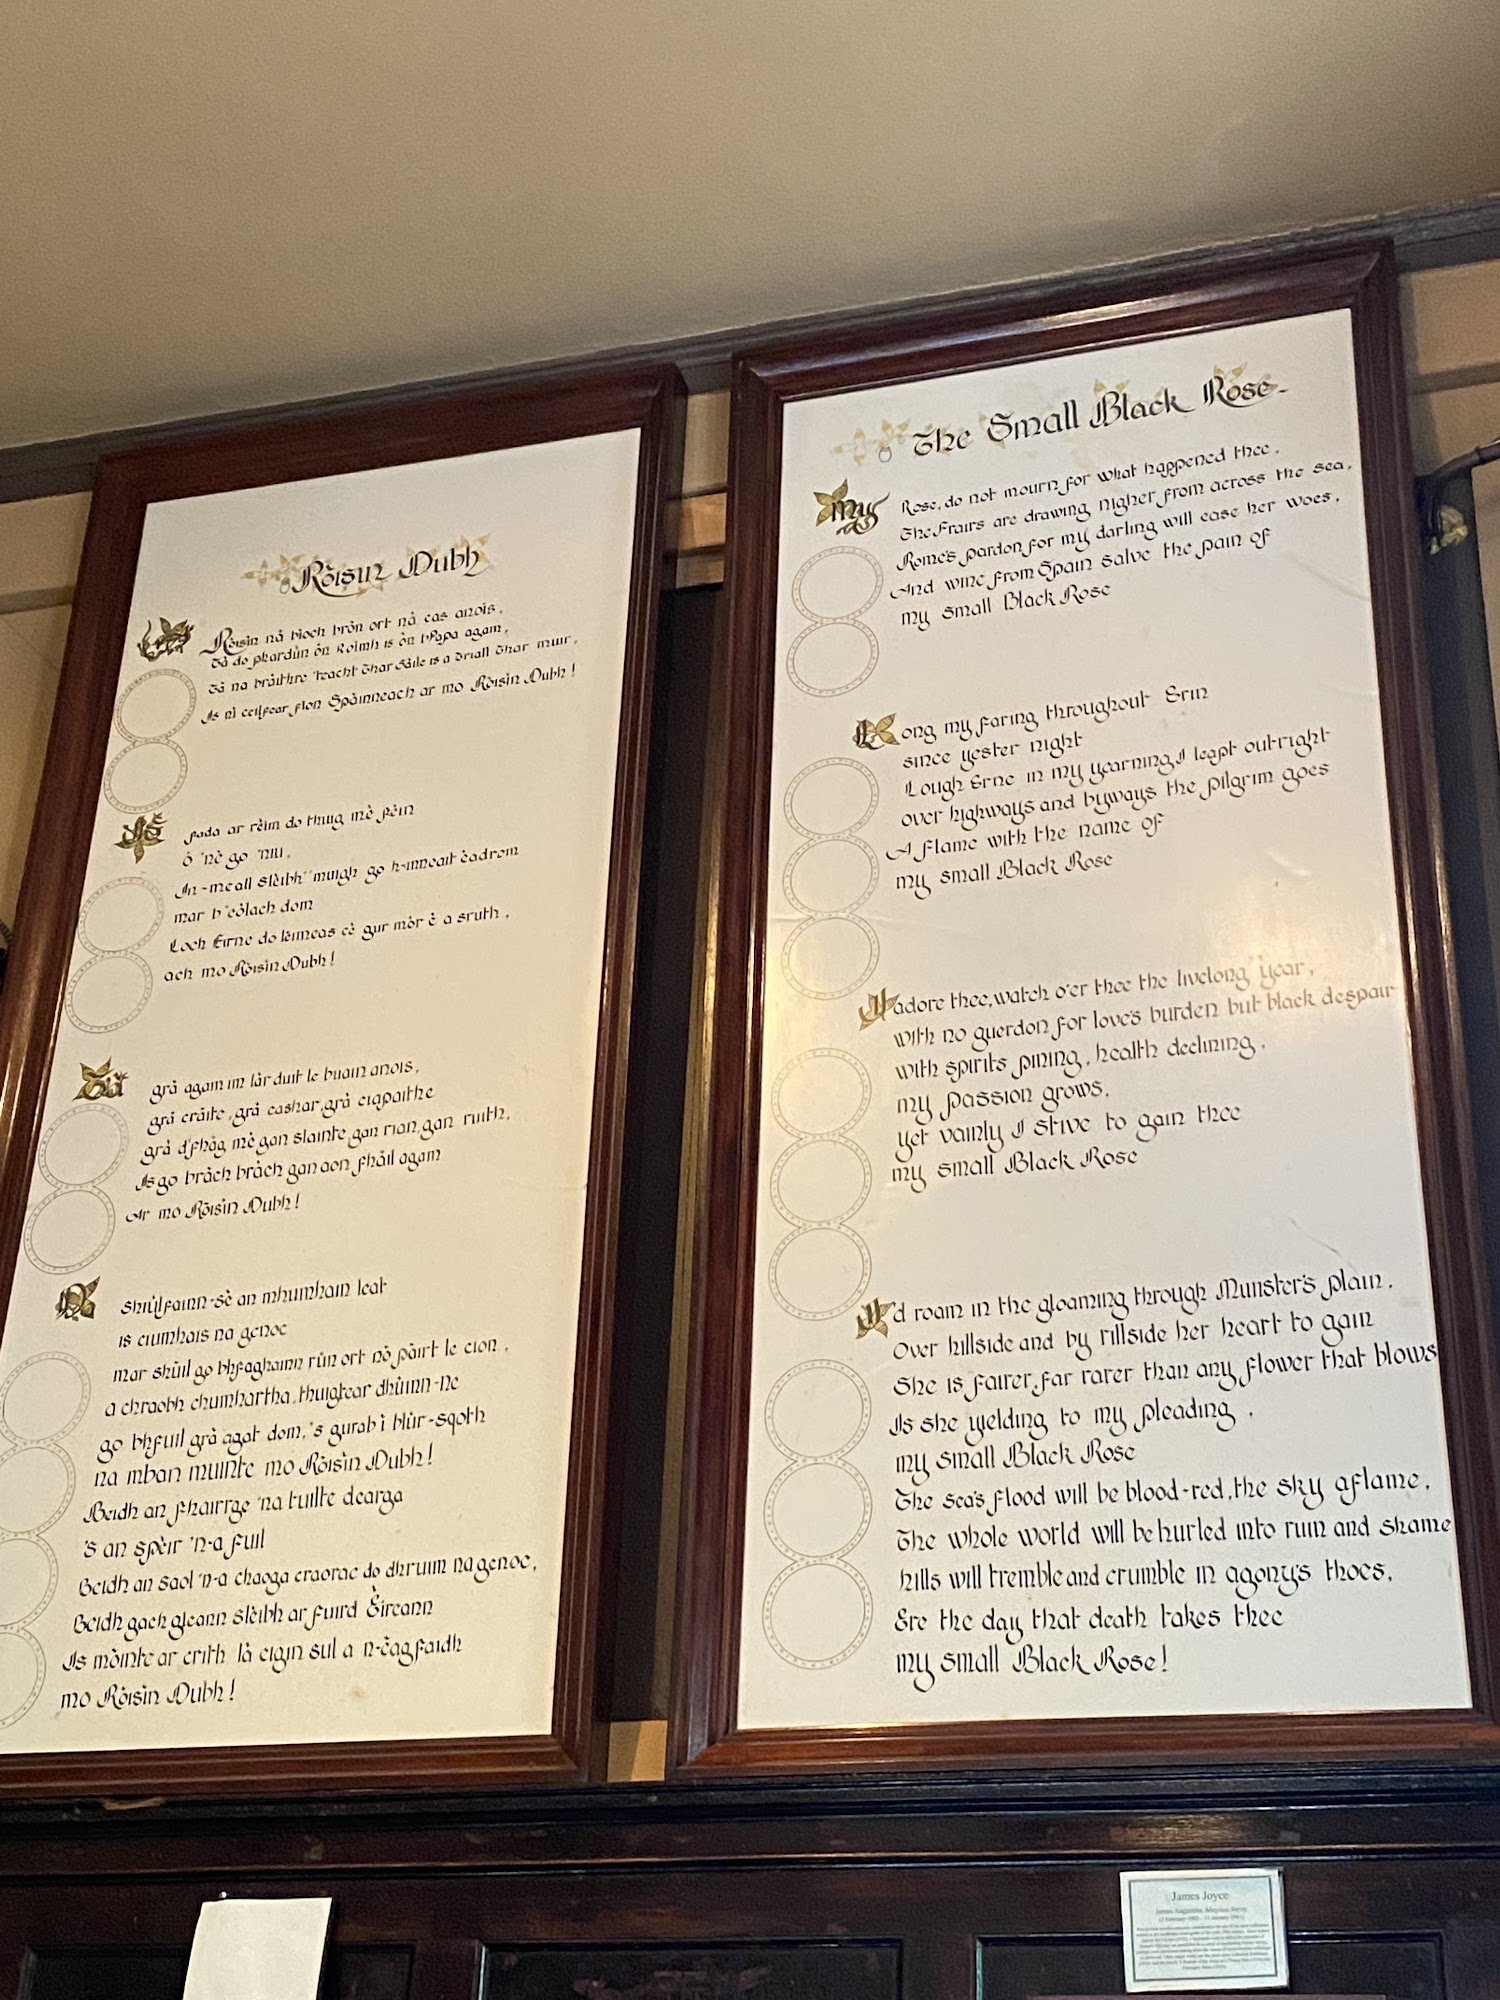 Ròisìn Dubh
A Ròisìn nà bìoch bròn ort nà cas anois,
Tà do phardùn òn Roìmh is òn bPapa agam,
Tà na bràithre 'teacht thar sàile is a triall thar muir,
Is nì ceilfear fìon Spàinneach ar mo Ròisìn Dubh!
Is fada ar rèim do thug mè fèin
ò 'nè go 'niu,
In-meall slèibh' 'muigh go h-inneait èadrom
mar b'eòlach dom
Loch Eirne do lèimeas cè gur mòr è a sruth,
ach mo Ròisìn Dubh!
Tà grà agam im làr duit le buain anois,
grà cràite, grà cashar, grà ciapaithe
grà d'fhàg mè gan slainte, gan rian, gan ruith,
Is go bràch bràch gan aon fhàil agam
Ar mo Ròisìn Dubh!
Do shiùlfainn-sè an mhumhain leat
is ciumhais na gcnoc
mar shùil go bhfaghainn rùn ort nò pàirt le cion,
a chraobh chumhartha, thuigtear dhùinn-ne
go bhfuil grà agat dom, 's gurab ì blùr-sgoth
na mban muinte mo Ròisìn Dubh!
Beidh an fhairrge 'na tuilte dearga
's an spèir 'n-a fuil
Beidh an saol 'n-a chaoga craorac do dhruim na gcnoc,
Beidh gach gleann slèibh ar fuird Èireann
Is mòinte ar crith là eigin sul a n-èagfaidh
mo Ròisìn Dubh!
The Small Black Rose
My Rose, do not mourn for what happened thee,
The Frairs are drawing nigher from across the sea,
Rome's pardon for my darling will ease her woes,
And wine from Spain salve the pain of
my small Black Rose
Long my faring throughout Erin
since yester night
Lough Erne in my yearning I leapt outright
over highways and byways the pilgrim goes
A flame with the name of
my small Black Rose
I adore thee, watch o'er thee the livelong year,
with no guerdon for love's burden but black despair
with spirits pining, health declining,
my passion grows,
yet vainly I stive to gain thee
my small Black Rose
I'd roam in the gloaming through Munster's plain,
Over hillside and by rillside her heart to gain
She is fairer, far rarer than any flower that blows
Is she yielding to my pleading,
my small Black Rose
The sea's flood will be blood-red, the sky aflame,
The whole world will be hurled into ruin and shame
hills will tremble and crumble in agony's thoes,
Ere the day that death takes thee
my small Black Rose!
James Joyce
James Augustine Aloysius Joyce